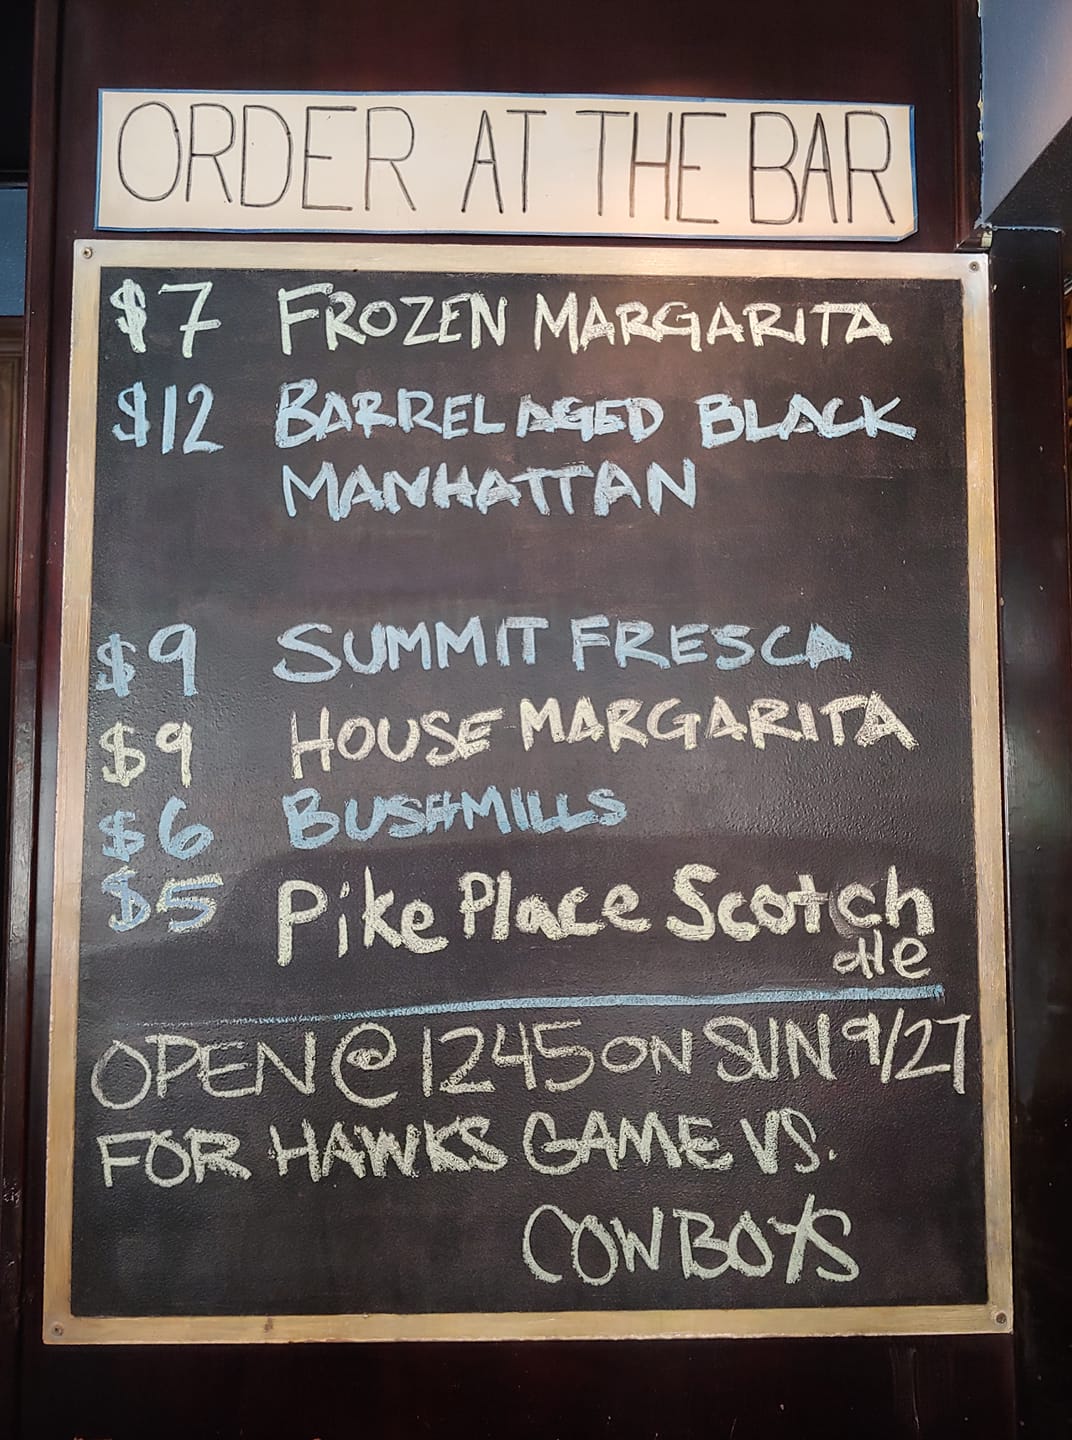 ORDER AT THE BAR
$7 FROZEN MARGARITA
$12 BARREL AGED BLACK
MANHATTAN
$9 SUMMIT FRESCA
$9 HOUSE MARGARITA
$6 BUSHMILLS
$5 Pike Place Scotch
ale
OPEN @ 1245 ON SUN 9/27
FOR HAWKS GAME VS.
COWBOYS